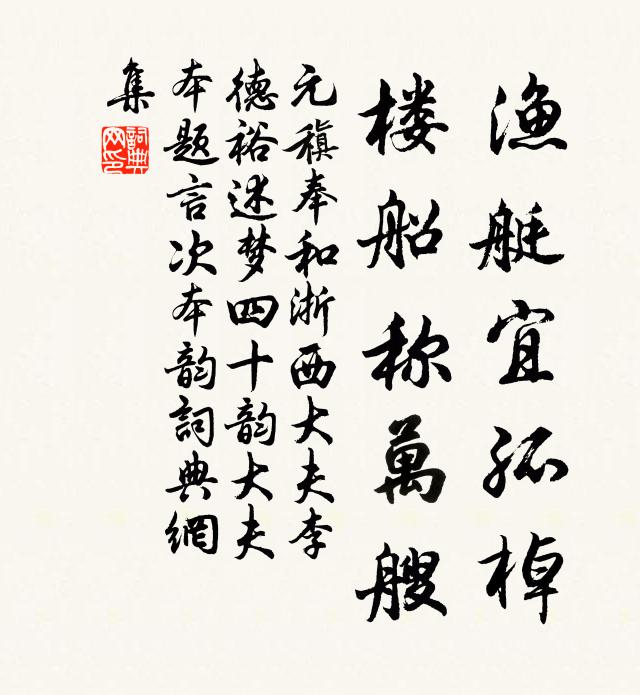 渔艇宜孤棹
楼船称萬艘
元稹奉和浙西大夫李
德裕述梦四十韵大夫
本题言次本韵詞典網
集
詞典
网印